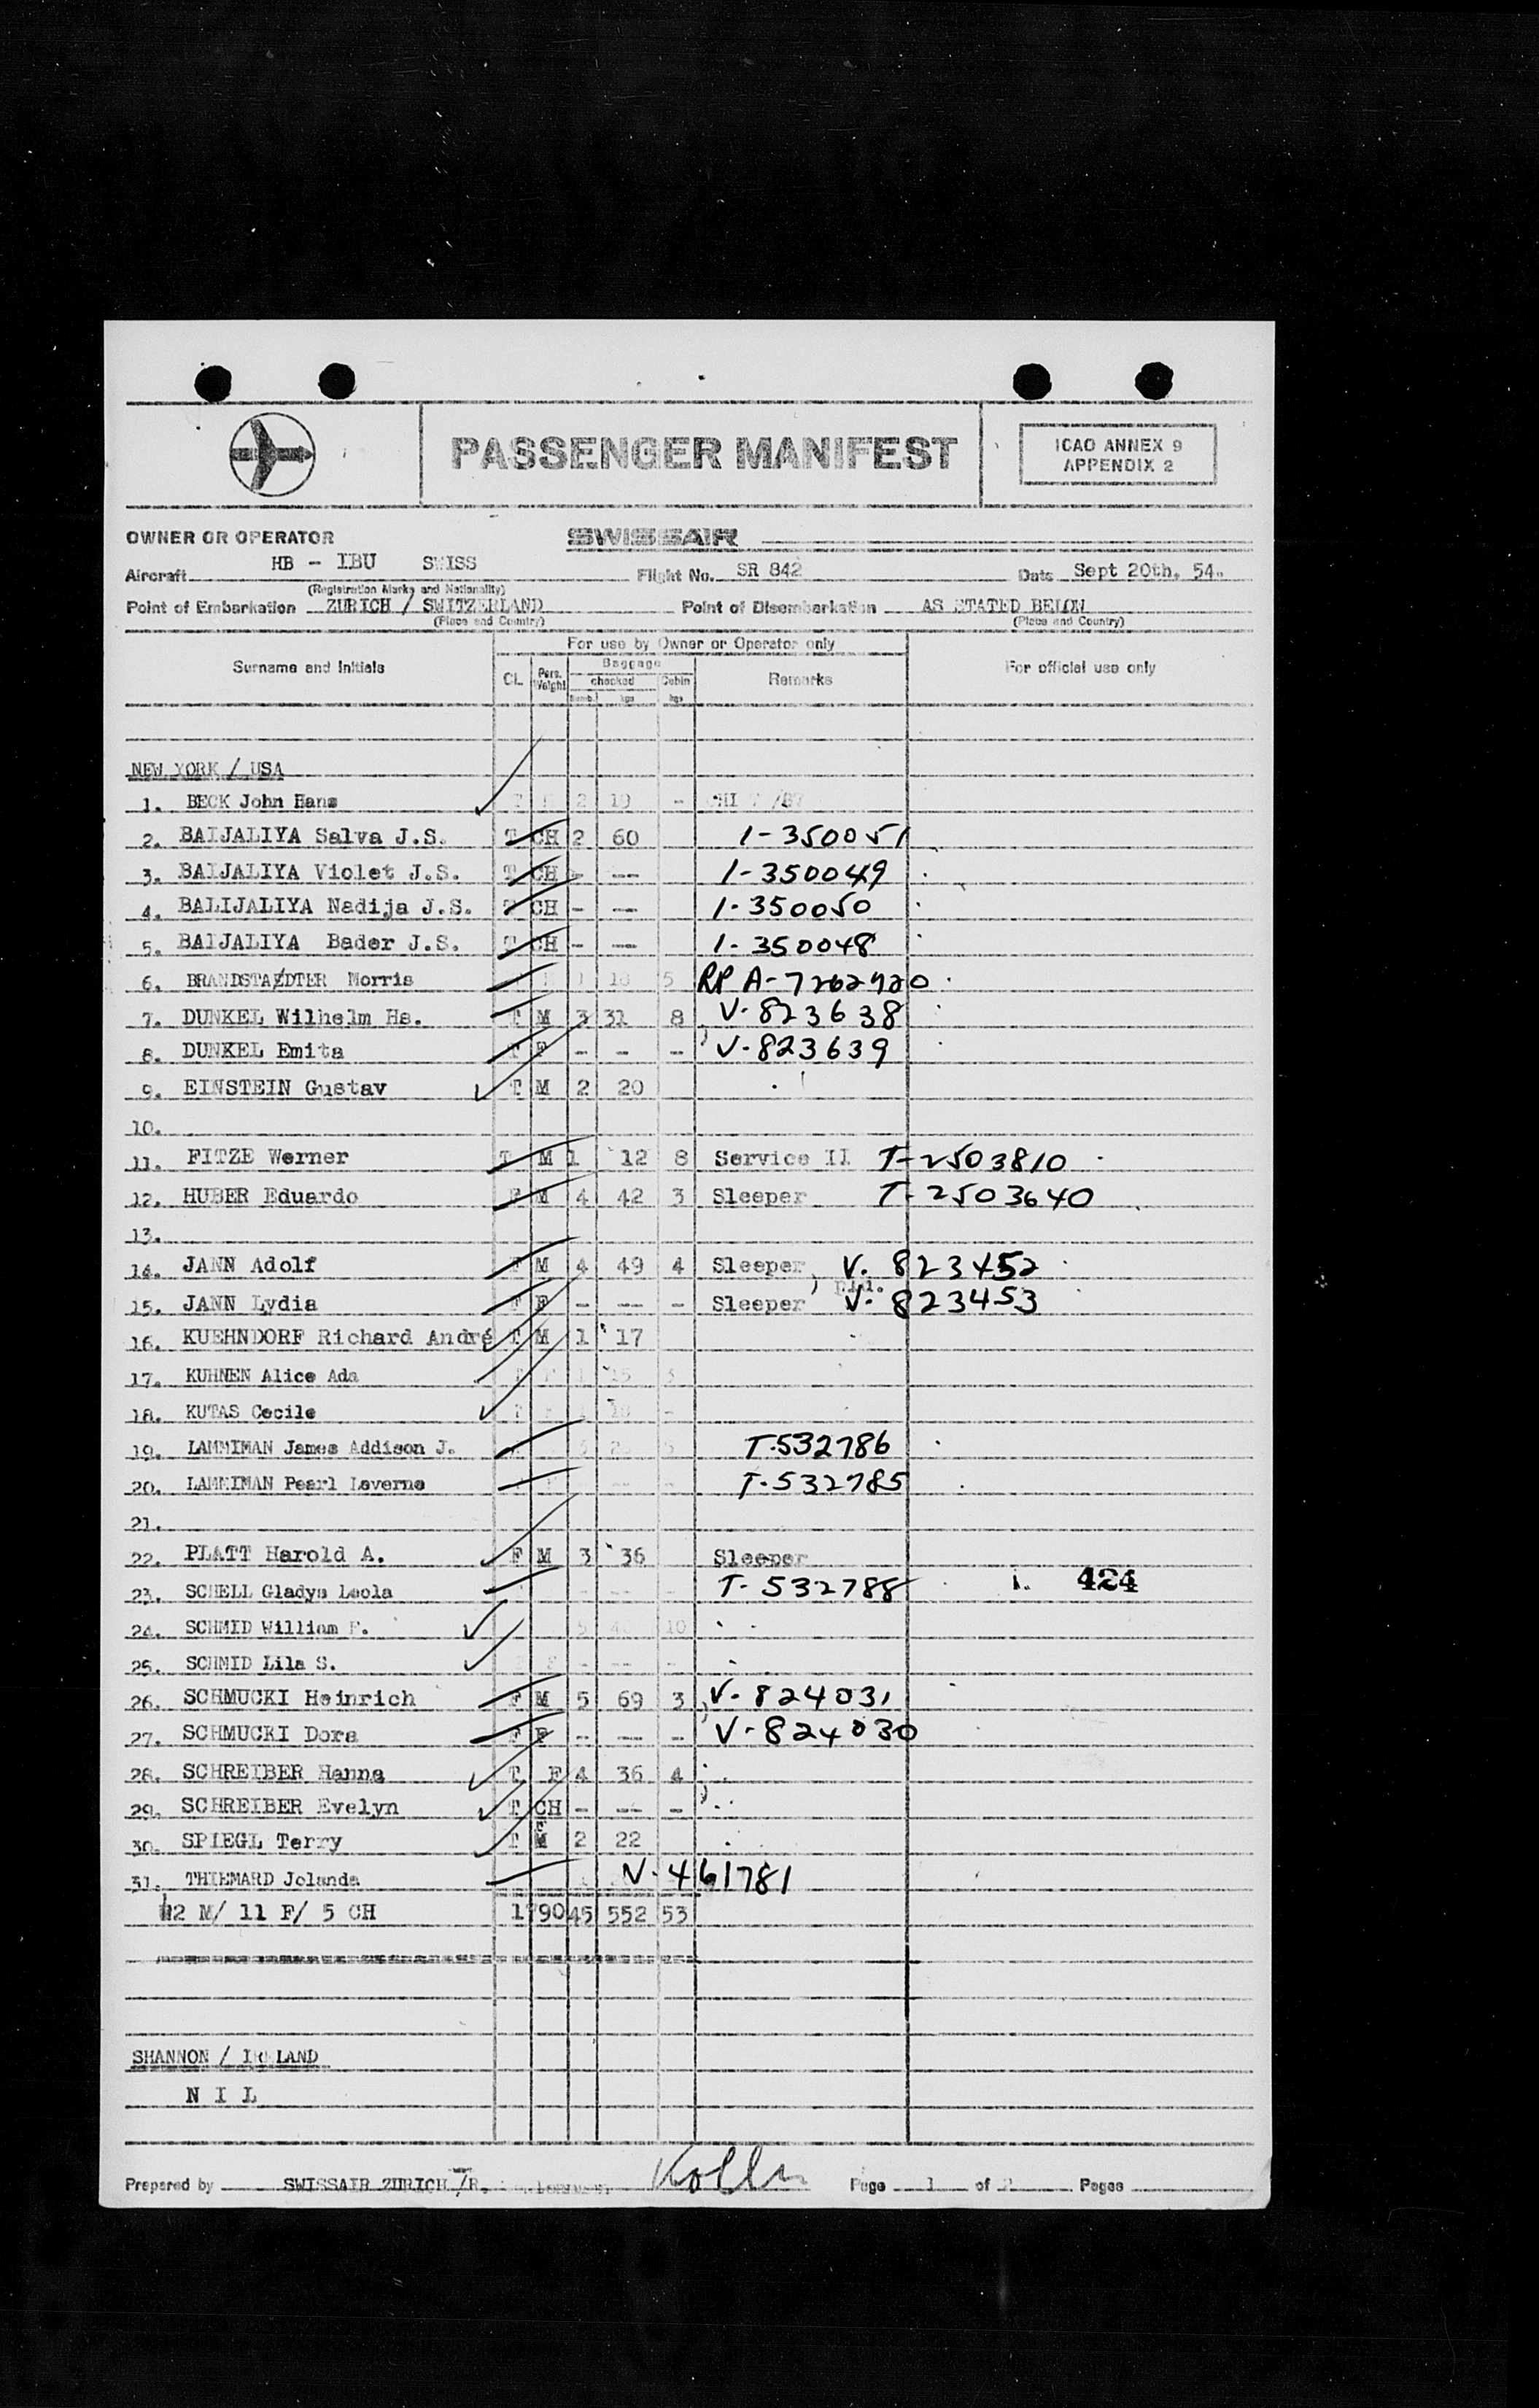 PASSENGER MANIFEST
ICAO ANNEX 9
APPENDIX 2
OWNER OR OPERATOR SWISSAIR
Aircraft HB - IBU SWISS Flight No. SR 842 Date Sept 20th. 54.
(Registration Marks and Nationality)
Point of Embarkation ZURICH / SWITZERLAND Point of Disembarkation AS STATED BELOW
(Place and Country) (Place and Country)
For use by Owner or Operator only
Surname and Initials CL. Pers. Weight Baggage checked Cabin Remarks For official use only
numb. kgs kgs
NEW YORK / USA
1. BECK John Hans 2 19 -
2. BAIJALIYA Salva J.S. T CH 2 60 1-350051
3. BAIJALIYA Violet J.S. T CH - --- 1-350049
4. BALIJALIYA Nadija J.S. T CH - --- 1-350050
5. BAIJALIYA Bader J.S. T CH - --- 1-350048
6. BRANDSTAEDTER Morris 1 18 5 RP A-7262920
7. DUNKEL Wilhelm Hs. T M 3 31 8 V-823638
8. DUNKEL Emita T F - - - V-823639
9. EINSTEIN Gustav T M 2 20
10.
11. FITZE Werner T M 1 12 8 Service II T-2503810
12. HUBER Eduardo F M 4 42 3 Sleeper T-2503640
13.
14. JANN Adolf F M 4 49 4 Sleeper V. 823452
15. JANN Lydia F F - --- - Sleeper V. 823453
16. KUEHNDORF Richard André T M 1 17
17. KUHNEN Alice Ada 1 15 3
18. KUTAS Cecile
19. LAMMIMAN James Addison J. T.532786
20. LAMMIMAN Pearl Laverne T-532785
21.
22. PLATT Harold A. F M 3 36 Sleeper
23. SCHELL Gladys Leola - --- - T-532788 424
24. SCHMID William F. 5 10
25. SCHMID Lila S. F - --- -
26. SCHMUCKI Heinrich F M 5 69 3 V-824031
27. SCHMUCKI Dora F F - --- - V-824030
28. SCHREIBER Hanna T F 4 36 4
29. SCHREIBER Evelyn T CH - --- -
30. SPIEGL Terry T M 2 22
31. THIEMARD Jolanda V-461781
12 M/ 11 F/ 5 CH 1790 45 552 53
SHANNON / IRELAND
N I L
Prepared by SWISSAIR ZURICH /R. Page 1 of 2 Pages